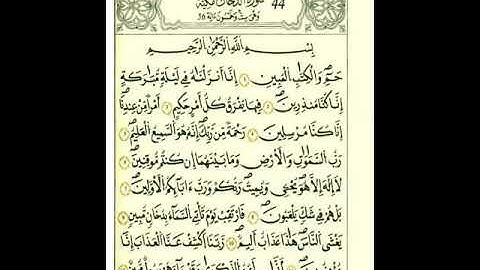 سُورَةُ الدُّخَانِ مَكِّيَّةٌ 44
وَهِيَ سِتٌّ وَخَمْسُونَ آيَةً
بِسْمِ اللَّهِ الرَّحْمَٰنِ الرَّحِيمِ
حمٓ وَالْكِتَٰبِ الْمُبِينِ إِنَّآ أَنزَلْنَٰهُ فِي لَيْلَةٍ مُّبَٰرَكَةٍ
إِنَّا كُنَّا مُنذِرِينَ فِيهَا يُفْرَقُ كُلُّ أَمْرٍ حَكِيمٍ أَمْرًا مِّنْ عِندِنَآ
إِنَّا كُنَّا مُرْسِلِينَ رَحْمَةً مِّن رَّبِّكَ إِنَّهُ هُوَ السَّمِيعُ الْعَلِيمُ
رَبِّ السَّمَٰوَٰتِ وَالْأَرْضِ وَمَا بَيْنَهُمَآ إِن كُنتُم مُّوقِنِينَ
لَآ إِلَٰهَ إِلَّا هُوَ يُحْيِي وَيُمِيتُ رَبُّكُمْ وَرَبُّ ءَابَآئِكُمُ الْأَوَّلِينَ
بَلْ هُمْ فِي شَكٍّ يَلْعَبُونَ فَارْتَقِبْ يَوْمَ تَأْتِي السَّمَآءُ بِدُخَانٍ مُّبِينٍ
يَغْشَى النَّاسَ هَٰذَا عَذَابٌ أَلِيمٌ رَّبَّنَا اكْشِفْ عَنَّا الْعَذَابَ إِنَّا